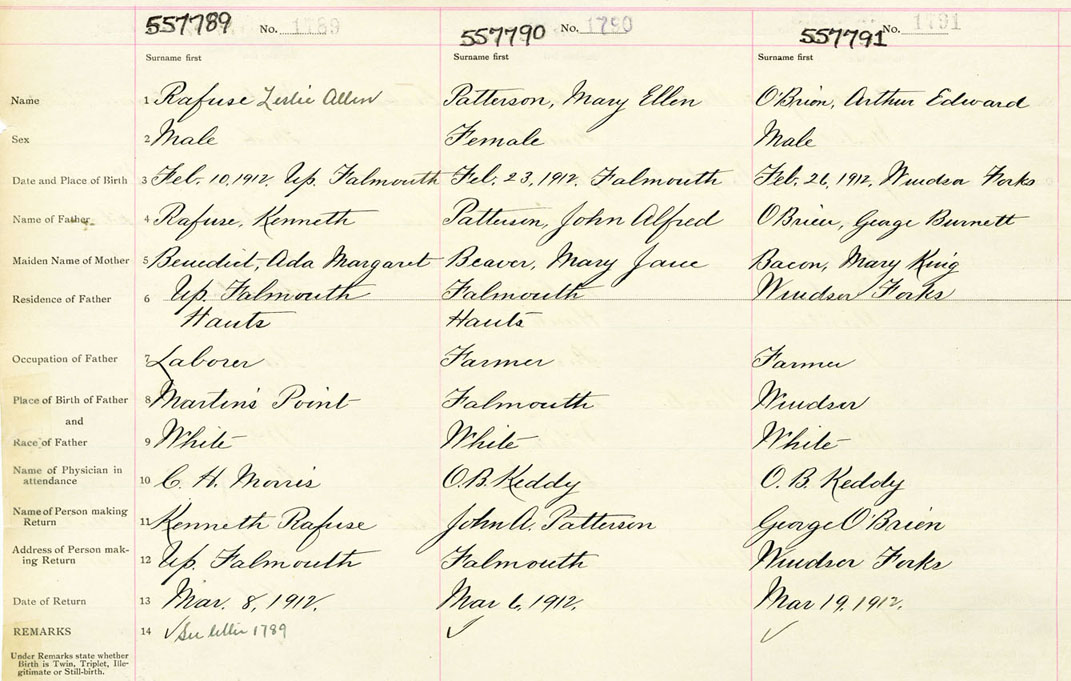 557789 No. 1789 557790 No. 1790 557791 No. 1791
Surname first Surname first Surname first
Name 1 Rafuse Leslie Allen Patterson, Mary Ellen O'Brien, Arthur Edward
Sex 2 Male Female Male
Date and Place of Birth 3 Feb. 10, 1912. Up. Falmouth Feb. 23, 1912. Falmouth Feb. 26, 1912, Windsor Forks
Name of Father 4 Rafuse, Kenneth Patterson, John Alfred O'Brien, George Burnett
Maiden Name of Mother 5 Benedict, Ada Margaret Beaver, Mary Jane Bacon, Mary King
Residence of Father 6 Up. Falmouth Falmouth Windsor Forks
Hants Hants
Occupation of Father 7 Laborer Farmer Farmer
Place of Birth of Father 8 Martin's Point Falmouth Windsor
and
Race of Father 9 White White White
Name of Physician in
attendance 10 C. H. Morris O. B. Keddy O. B. Keddy
Name of Person making
Return 11 Kenneth Rafuse John A. Patterson George O'Brien
Address of Person mak-
ing Return 12 Up. Falmouth Falmouth Windsor Forks
Date of Return 13 Mar. 8, 1912. Mar 6, 1912. Mar 19, 1912.
REMARKS 14 ✓ See letter 1789 ✓ ✓
Under Remarks state whether
Birth is Twin, Triplet, Ille-
gitimate or Still-birth.